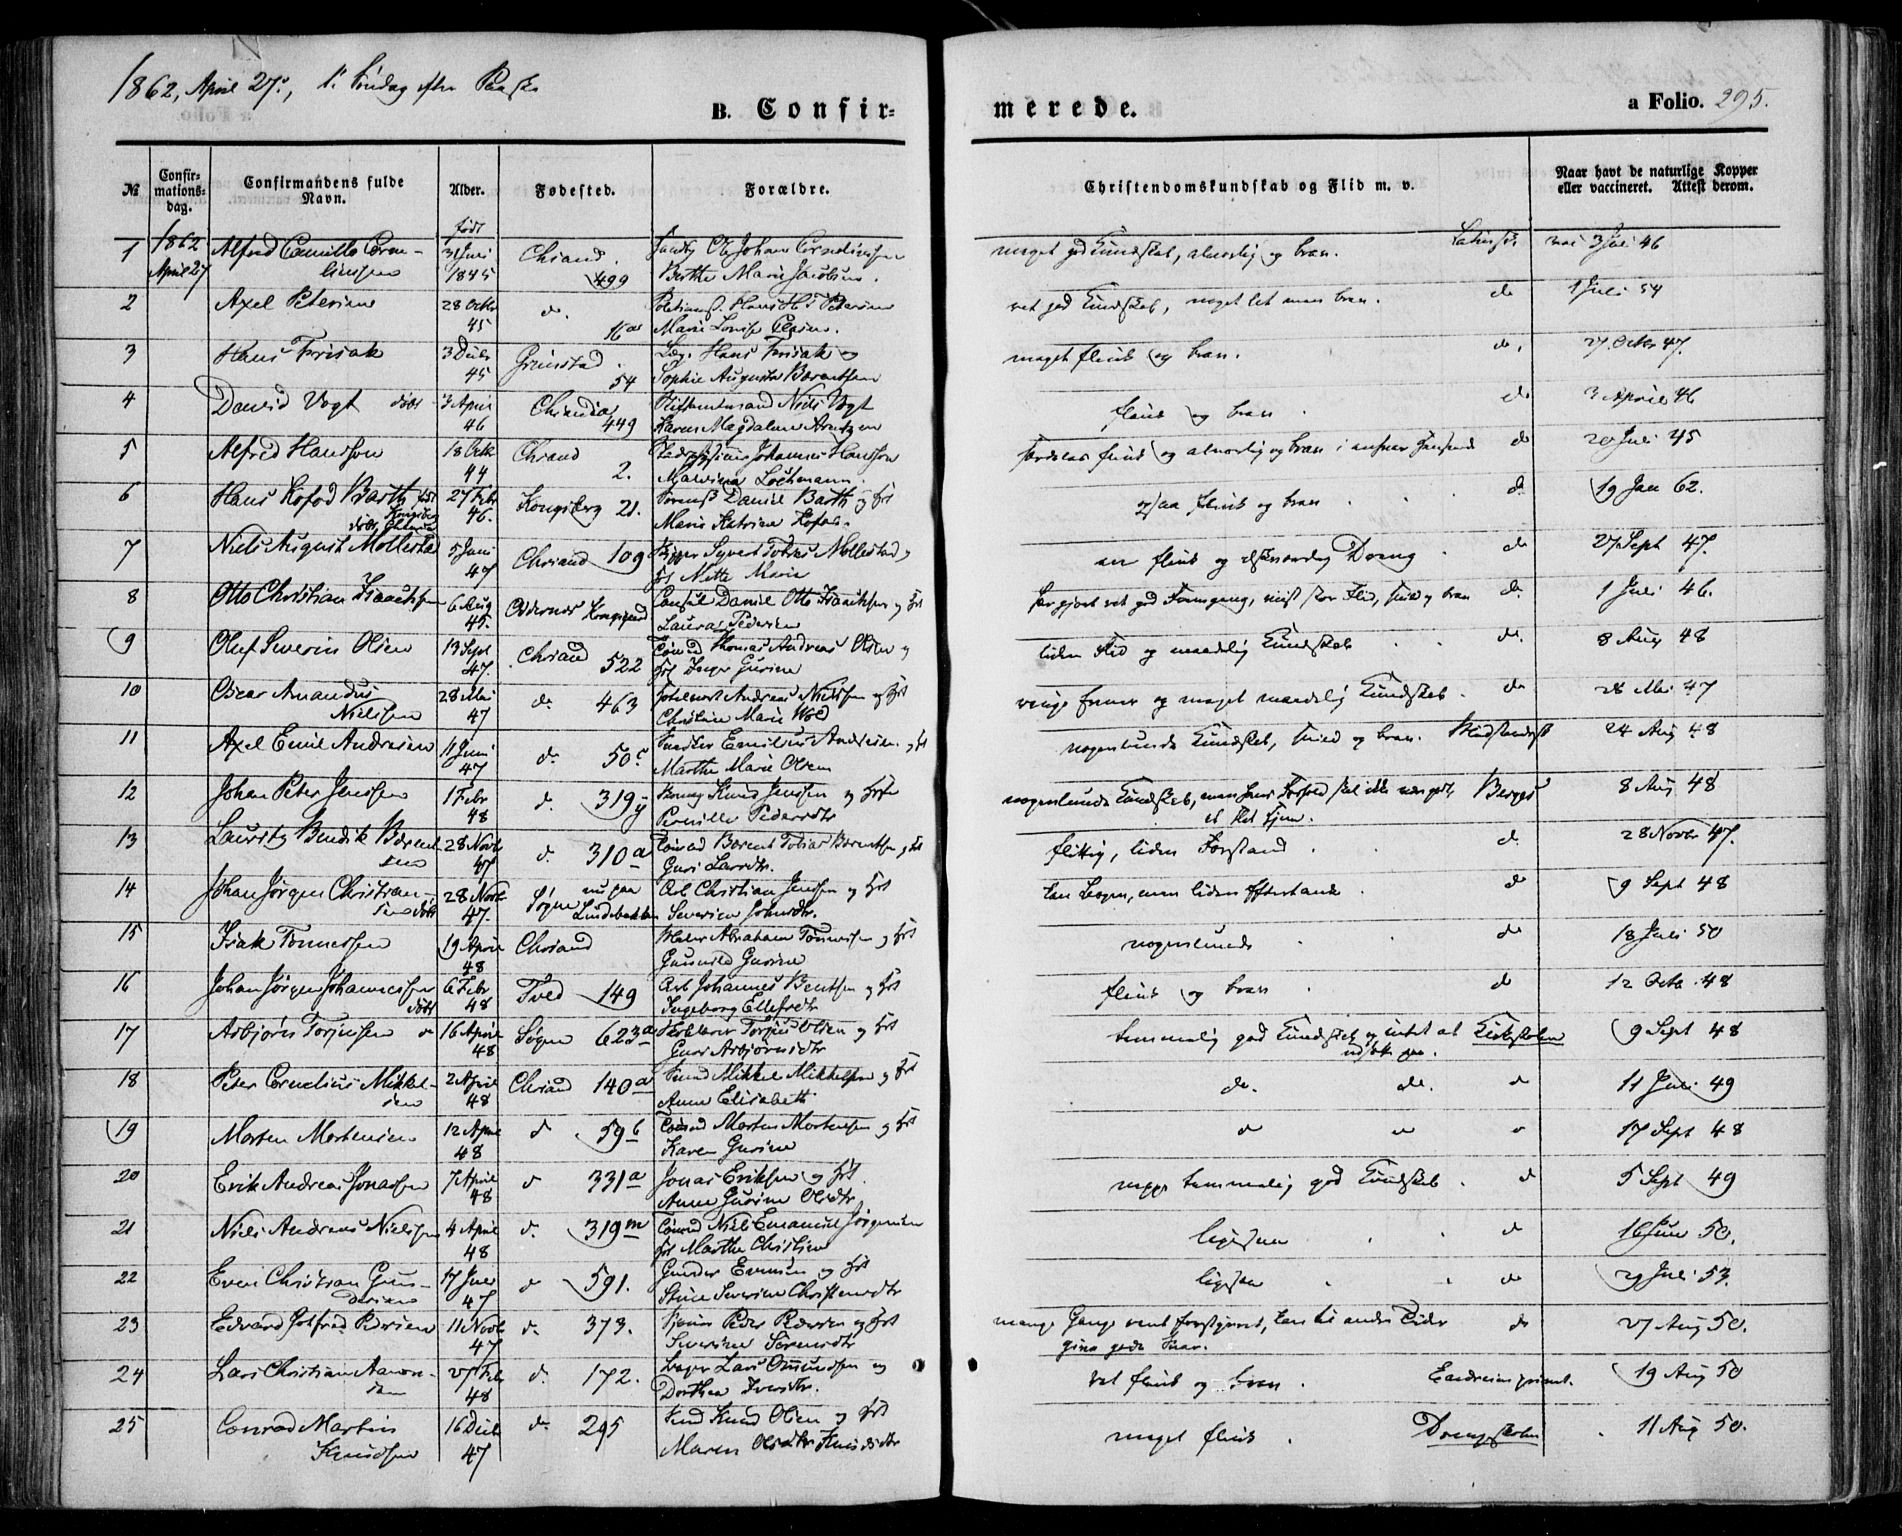 1862, April 27., 1. Søndag efter Paaske
B. Confir-
merede.
a Folio. 295.
№
Confir-
mations-
dag.
Confirmandens fulde
Navn.
Alder.
Fødested.
Forældre.
Christendomskundskab og Flid m. v.
Naar havt de naturlige Kopper
eller vaccineret. Attest derom.
født
1 1862 April 27 Alfred Camillo Corne-
liussen 3 Juni 1845 Chrsand. 499 Ole Johan Corneliussen
Berthe Marie Jacobsen.
meget god Kundskab, alvorlig og brav. 3 Juli 46
2 Axel Petersen 28 Octbr 45 do. 16 Hans Petersen
Marie Lovise Olsen.
ret god Kundskab, meget let men brav. do 1 Juli 54
3 Hans Frisak 3 Decbr 45 Grimstad 54 Læge Hans Frisak
Sophie Augusta Berentsen
meget flink og brav. do. 27 Octbr 47.
4 David Vogt døbt 3 April 46 Christiania 449 Stiftamtmand Niels Vogt
Karen Magdalene Arntzen
flink og brav do 3 April 46
5 Alfred Hansson 18 Octb 44 Chrsand 2. Johannes Hansson
Malvina Lochmann.
flink og alvorlig og brav i enhver Henseende do 20 Juli 45
6 Hans Kofod Barth født Kongsberg
døbt 27 Febr 46. Kongsberg 21. Daniel Barth og Hst
Marie Katrine Kofod.
ogsaa flink og brav do. 19 Jan 62.
7 Niels August Mollestad 5 Juni 47 Chrsand 109 Syvert Tobias Mollestad og
Hst Nette Marie
en flink og elskværdig Dreng do 27 Sept 47.
8 Otto Christian Isaachsen 6 Aug 45. Oddernes Kongsgaard Consul Daniel Otto Isaachsen og Hst
Laura Pedersen
har gjort ret god Fremgang, vist stor Flid, flink og brav do. 1 Juli 46.
9 Oluf Severin Olsen 13 Sept 47. Chrsand 522 Thomas Andreas Olsen og
Hst Inger Gurine
liden Flid og maadelig Kundskab do. 8 Aug 48
10 Oscar Amandus
Nielssen 28 Mai 47 do. 463 Andreas Nielssen og Hst
Christine Marie
ringe Evner og meget maadelig Kundskab. do 28 Mai 47
11 Axel Emil Andresen 11 Juni 47 do. 50 c Snedker Emilius Andresen og Hst
Marthe Marie Olsen
nogenlunde Kundskab, flink og brav. 24 Aug 48
12 Johan Peter Jenssen 1 Febr 48 do. 319 y Knud Jenssen og Hst
Pernille Pedersdtr
nogenlunde Kundskab, men hans Forhold skal ikke være godt,
et slet Hjem. 8 Aug 48
13 Lauritz Bendik Berent-
sen 28 Novbr 47 d. 310 a Berent Tobias Berentsen og Hst
Guri Larsdtr.
flittig, liden Forstand do 28 Novbr 47.
14 Johan Jørgen Christian-
sen døbt 28 Novb 47. Søgne nu paa
Lindebækken Arb Christian Jenssen og Hst
Severine Johnsdtr.
kan Bogen, men liden Eftertanke do 9 Sept 48
15 Isak Tønnessen 19 April 48 Chrsand Maler Abraham Tønnessen og Hst
Gunnild Gurine
nogenlunde do 18 Juli 50
16 Johan Jørgen Johannessen
døbt 6 Febr 48 Tved 149 Arb Johannes Bentsen og Hst
Ingeborg Ellefsdtr
flink og brav do 12 Octb. 48
17 Asbjørn Torjussen 16 April 48 Søgne 623 a Torjus Olsen og Hst
Guri Asbjørnsdtr
temmelig god Kundskab og intet at
udsætte paa. 9 Sept 48
18 Peter Cornelius Mikkel-
sen 2 April 48 Chrsand 140 a Mikkel Mikkelsen og Hst
Anne Elisabeth
do. do. d 11 Juli 49
19 Morten Mortensen 12 April 48 d 59 b Morten Mortensen og Hst
Karen Gurine
17 Sept 48
20 Erik Andreas Jonassen 7 April 48 d 331 a Jonas Eriksen og Hst.
Anne Gurine Olsdtr.
temmelig god Kundskab. d 5 Sept 49
21 Niels Andreas Nielssen 4 April 48 d. 319 m Niels Emanuel Jørgensen
Hst Marthe Christine
ligesaa d 16 Juni 50.
22 Even Christian Gun-
dersen 17 Juli 47 d 591. Gunder Evensen og Hst
Stine Severine Christensdtr
ligesaa d 29 Juli 53.
23 Edvard Gotfred Pedersen 11 Novb 47 d. 373. Peder Pedersen og Hst
Severine Sørensdtr
mange Gange været forstyrret, kan til andre Tider
give gode Svar. do 27 Aug 50.
24 Lars Christian Aanon-
sen 27 Feb 48 d. 172. Lars Omundsen og
Dorthea Iversdtr.
ret flink og brav. 19 Aug 50
25 Conrad Martin
Knudsen 16 Decb 47 d. 295 Knud Olsen og Hst
Maren Olsdtr Knudsdtr
meget flink. 11 Aug 50.